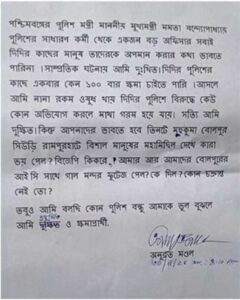 পশ্চিমবঙ্গের পুলিশ মন্ত্রী মাননীয় মুখ্যমন্ত্রী মমতা বন্দ্যোপাধ্যায়
পুলিশের সাধারণ কর্মী থেকে একজন বড় অফিসার সবাই
দিদির কাছের মানুষ তাদেরকে অপমান করার কথা ভাবতে
পারিনা। সাম্প্রতিক ঘটনায় আমি দুঃখিত। দিদির পুলিশের
কাছে একবার কেন ১০০ বার ক্ষমা চাইতে পারি। আসলে
আমি নানা রকম ওষুধ খায় দিদির পুলিশের বিরুদ্ধে কেউ
কোন অভিযোগ করলে মাথা গরম হয়ে যায়। সত্যি আমি
দুঃখিত। কিন্তু আপনাদের ভাবতে হবে তিনটে মহকুমা বোলপুর
সিউড়ি রামপুরহাটে বিশাল মানুষের মহামিছিল দেখে কারা
ভয় পেল? বিজেপি কিকরে আমার আর আমাদের বোলপুরের
আই সি সাথে গাল মন্দর ফুটেজ পেল? কে দিল? কোন চক্রান্ত
নেই তো?
তবুও আমি বলছি কোন পুলিশ বন্ধু আমাকে ভুল বুঝলে
আমি দুঃখিত ও ক্ষমাপ্রার্থী।
অনুব্রত মণ্ডল